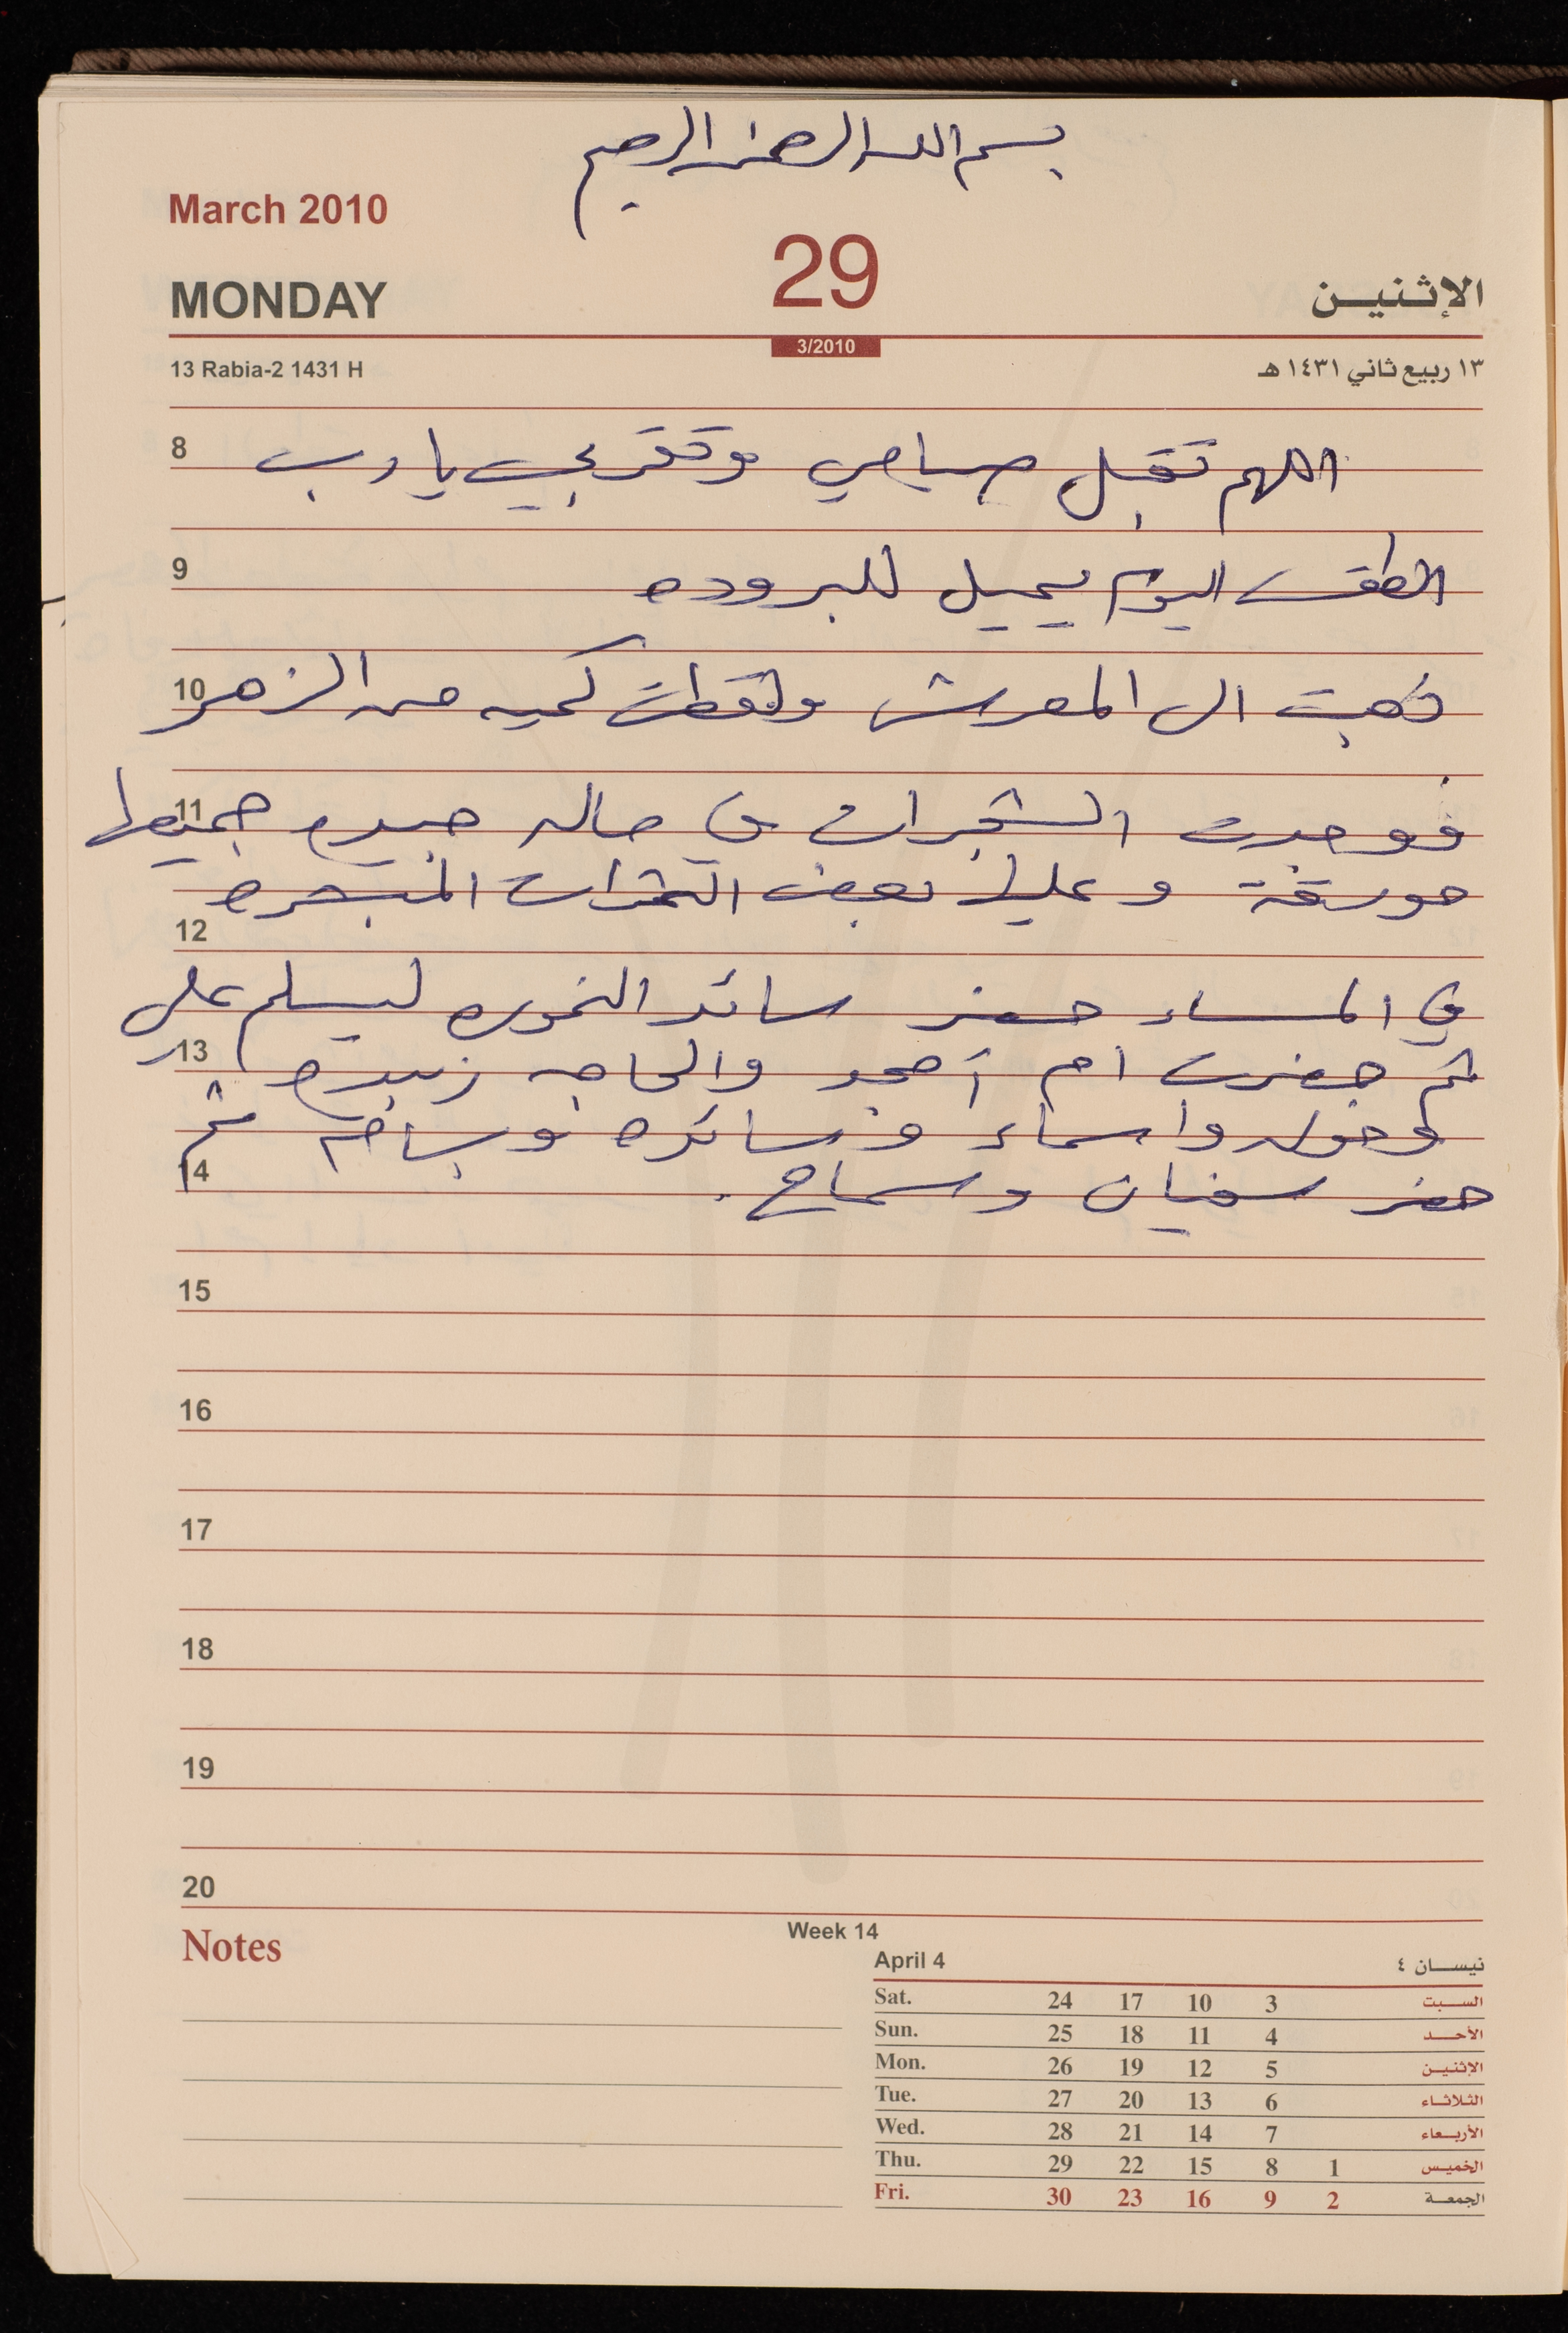 بسم الله الرحمن الرحيم
March 2010
29
MONDAY
الإثنين
3/2010
13 Rabia-2 1431 H
١٣ ربيع ثاني ١٤٣١ هـ
8 اللهم تقبل صيامي وتقربي يا رب
9 الطقس اليوم يميل للبروده
10 ذهبت ال المعرش ولقطت كميه من الزهر
11 فوجدت الشجرات في حاله جيده جميعها
مورقة وعليها بعض الثمرات المبكره
12
في المساء حضر سائد النموره ليسلم علي
13 ثم حضرت ام امجد والحاجه زبيده
وخوله واسماء وسائده وبسامه ثم
14 حضر سفيان وسماح.
15
16
17
18
19
20
Notes
Week 14
April 4 نيسان ٤
Sat. 24 17 10 3 السبت
Sun. 25 18 11 4 الأحد
Mon. 26 19 12 5 الإثنين
Tue. 27 20 13 6 الثلاثاء
Wed. 28 21 14 7 الأربعاء
Thu. 29 22 15 8 1 الخميس
Fri. 30 23 16 9 2 الجمعة